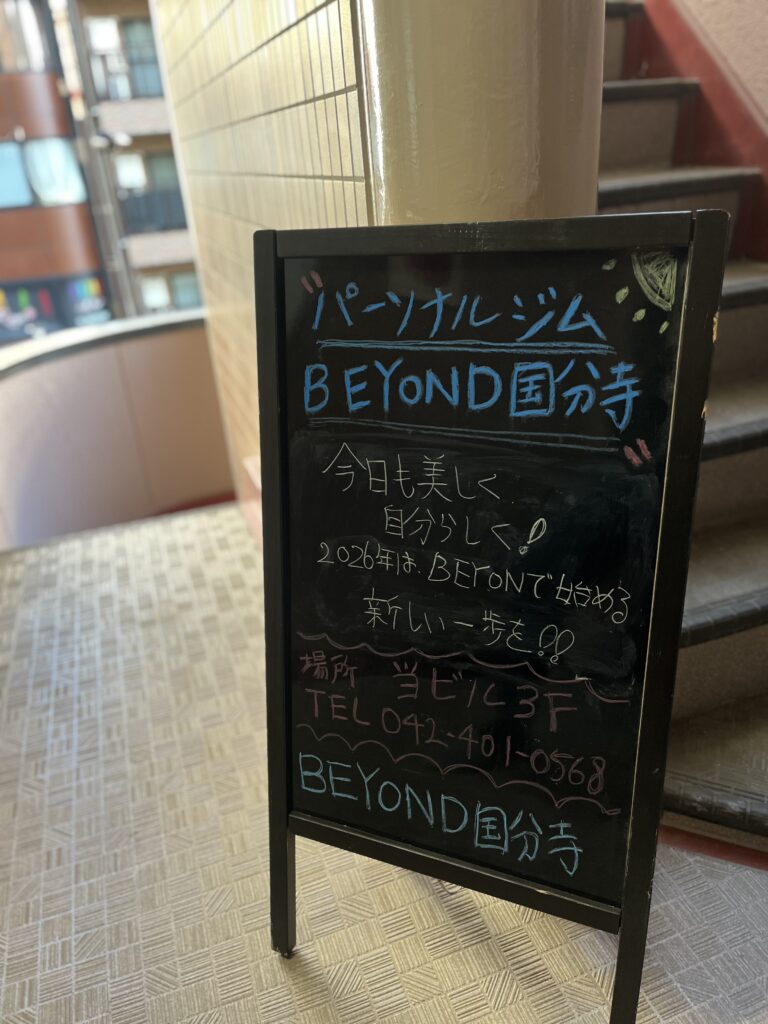 "パーソナルジム
BEYOND国分寺"
今日も美しく
自分らしく!
2026年は、BEYONで始める
新しい一歩を!!
場所 当ビル3F
TEL 042-401-0568
BEYOND国分寺